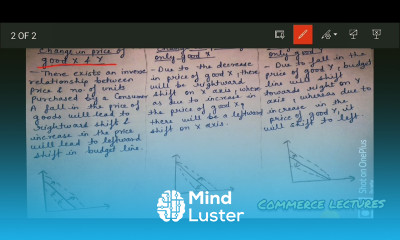 2 OF 2
Change in price of
good X & Y
- There exists an inverse
relationship between
price & no. of units
Purchased by a Consumer
A fall in the price of
goods will lead to
rightward shift &
increase in the price
will lead to leftward
shift in budget line.
only good X.
- Due to the decrease
in price of good X, there
will be rightward
shift on X axis, where
as due to increase in
the price of good X,
there will be a leftward
shift on X axis.
only good Y
- Due to fall in the
price of good Y, budget
line will shift
towards right on Y
axis whereas due to
increase in the
price of good Y, it
will shift to left.
Shot on OnePlus
Mind
Luster
Commerce Lectures